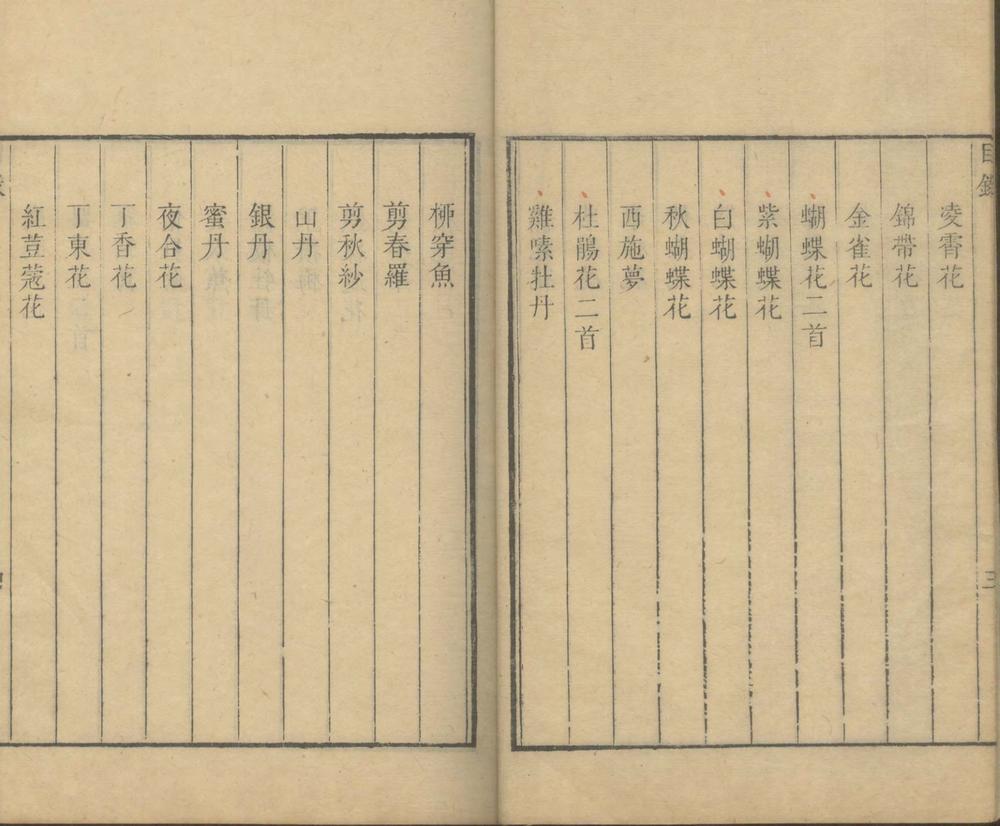 目錄
凌霄花
錦帶花
金雀花
蝴蝶花二首
紫蝴蝶花
白蝴蝶花
秋蝴蝶花
西施夢
杜鵑花二首
雞嗉牡丹
栁穿魚
剪春羅
剪秋紗
山丹
銀丹
蜜丹
夜合花
丁香花
丁東花
紅荳蔻花